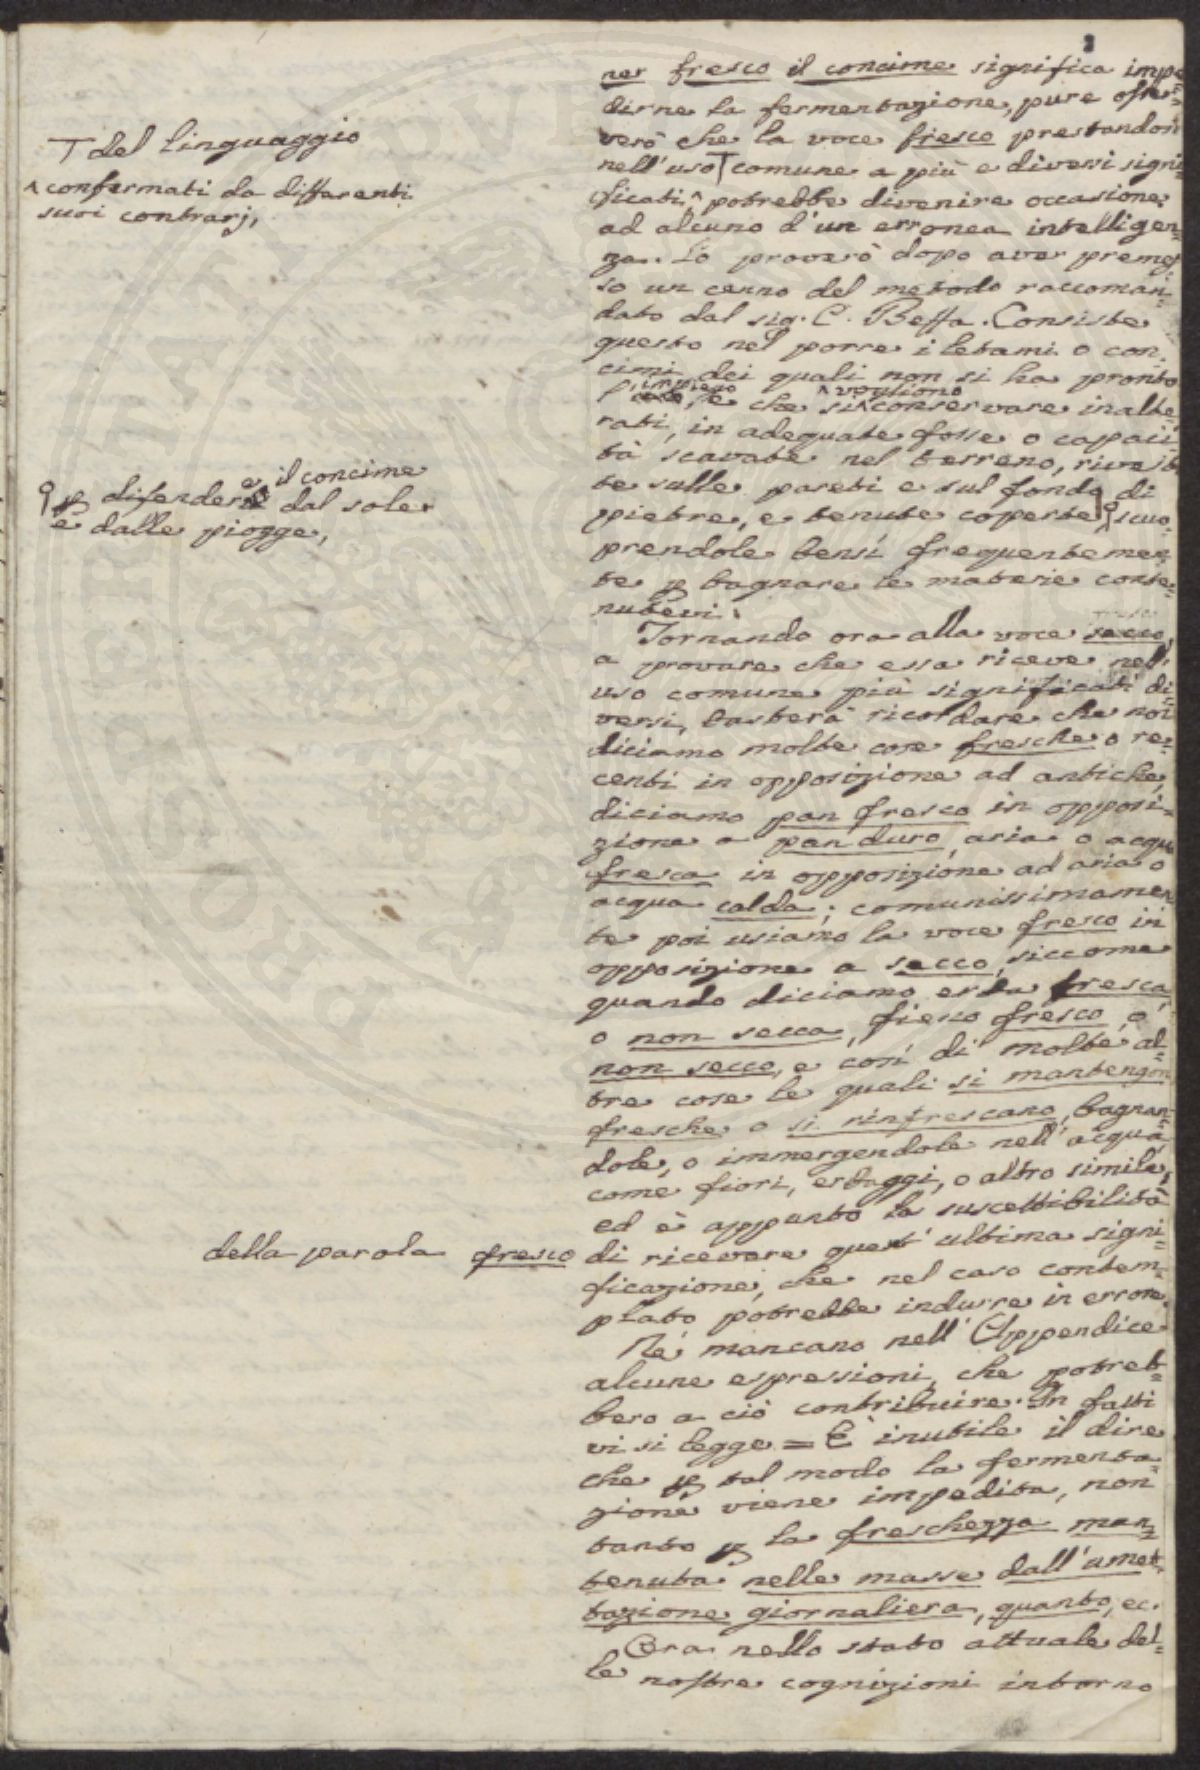 3
ner fresco il concime significa impe
dirne la fermentazione, pure osser=
verò che la voce fresco prestandosi
nell'uso T comune a più e diversi signi=
ficati,^ potrebbe divenire occasione
ad alcuno d'un erronea intelligen=
za. Lo proverò dopo aver premes=
so un cenno del metodo raccoman=
dato dal sig. C. Beffa. Consiste
questo nel porre i letami o con=
cimi dei quali non si ha pronto
l'impiego, e che si ^vogliono conservare inalte=
rati, in adeguate fosse o capaci=
tà scavate nel terreno, rivesti=
te sulle pareti e sul fondo di
pietre, e tenute coperte scuo=
prendole bensì frequentemen=
te p bagnare le materie conte=
nutevi.
Tornando ora alla voce fresco,
a provare che essa riceve nell'
uso comune più significati di=
versi, basterà ricordare che noi
diciamo molte cose fresche o re=
centi in opposizione ad antiche,
diciamo pan fresco in opposi=
zione a pan duro, aria o acqua
fresca in opposizione ad aria o
acqua calda; comunissimamen=
te poi usiamo la voce fresco in
opposizione a secco, siccome
quando diciamo erba fresca
o non secca, fieno fresco, o
non secco, e così di molte al=
tre cose le quali si mantengon
fresche o si rinfrescano, bagnan=
dole, o immergendole nell'acqua,
come fiori, erbaggi, o altro simile,
ed è appunto la suscettibilità
di ricevere quest'ultima signi=
ficazione, che nel caso contem=
plato potrebbe indurre in errore.
Nè mancano nell'Appendice
alcune espressioni, che potreb=
bero a ciò contribuire. In fatti
vi si legge = È inutile il dire
che p tal modo la fermenta=
zione viene impedita, non
tanto p la freschezza man=
tenuta nelle masse dall'umet=
tazione giornaliera, quanto, ec.
Ora nello stato attuale del=
le nostre cognizioni intorno
T del linguaggio
^ confermati da differenti
suoi contrarj,
p difendere il concime
dal sole
e dalle piogge,
della parola fresco